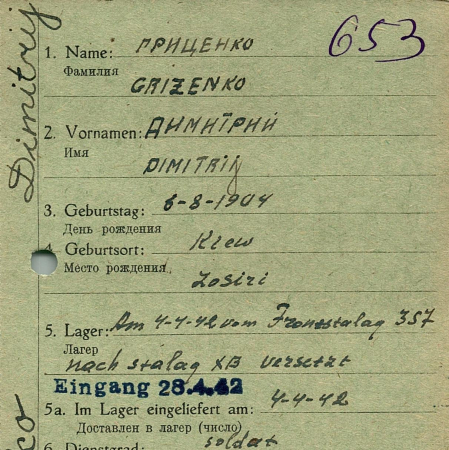 653
1. Name: ГРИЦЕНКО
Фамилия
GRIZENKO
2. Vornamen: ДИМИТРИЙ
Имя
DIMITRIJ
3. Geburtstag: 6-8-1904
День рождения
4. Geburtsort: Kiew
Место рождения
Losiri
5. Lager: Am 4-4-42 vom Fronstalag 357
Лагерь
nach stalag XB versetzt
Eingang 28.4.42
5a. Im Lager eingeliefert am: 4-4-42
Доставлен в лагерь (число)
6. Dienstgrad: soldat
Dimitrij